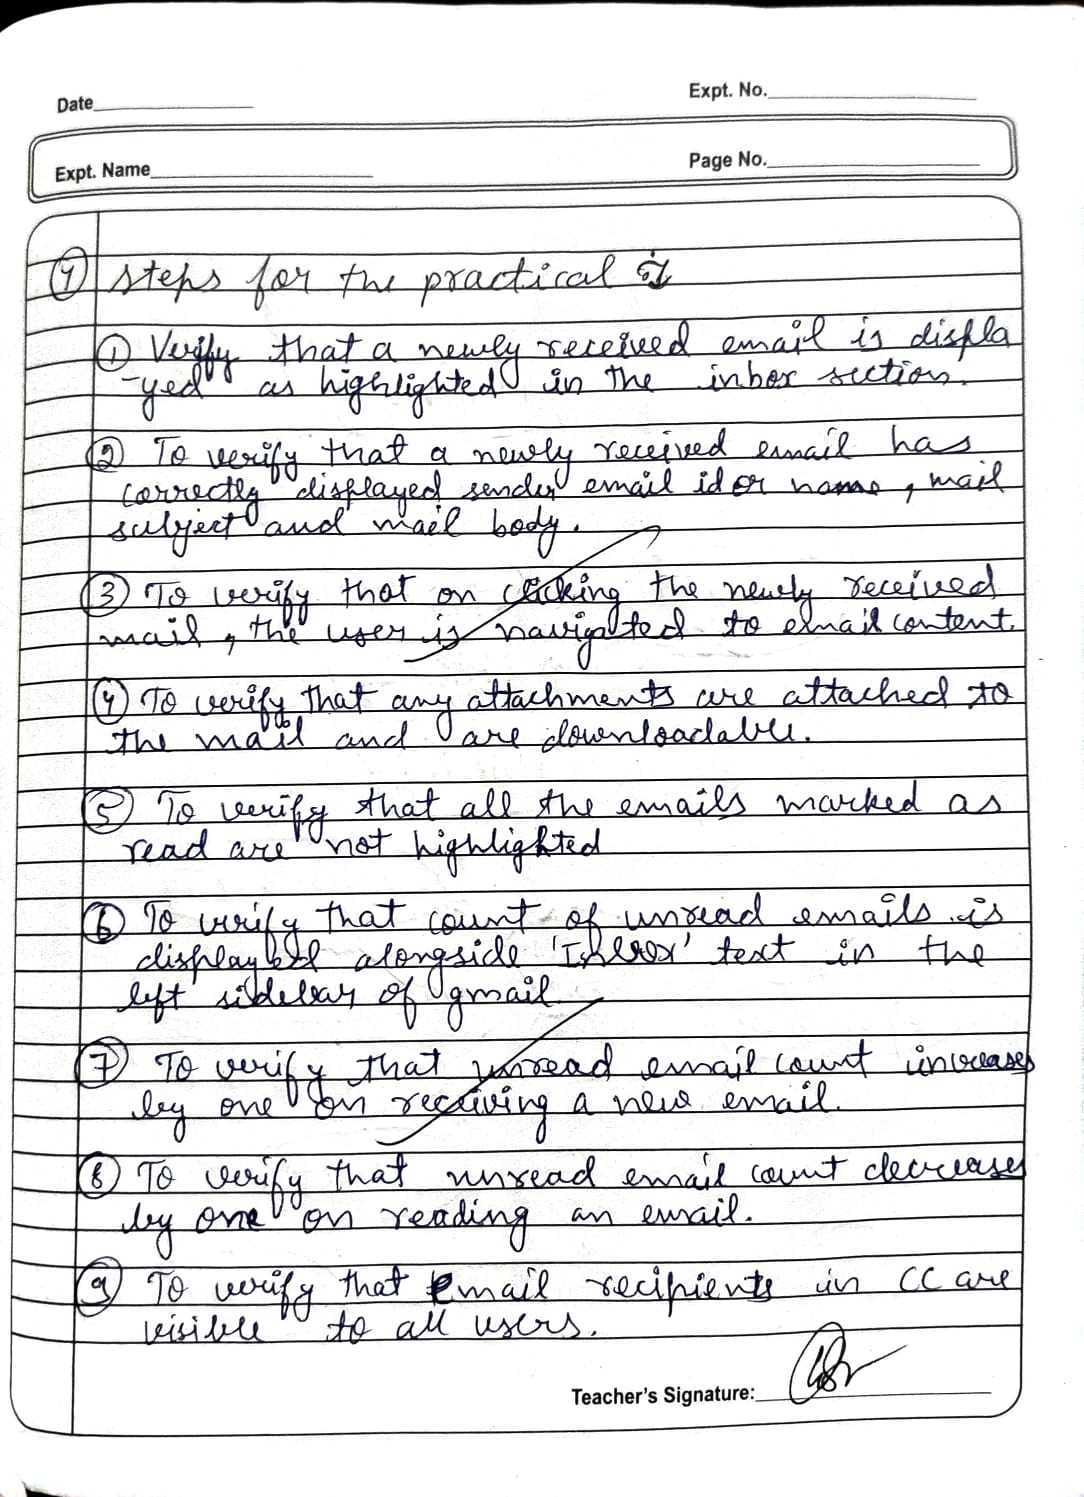 Date
Expt. No.
Expt. Name
Page No.
④ steps for the practical :-
① Verify that a newly received email is displa
-yed as highlighted in the inbox section.
② To verify that a newly received email has
correctly displayed sender email id or name, mail
subject and mail body.
③ To verify that on clicking the newly received
mail, the user is navigated to email content.
④ To verify that any attachments are attached to
the mail and are downloadable.
⑤ To verify that all the emails marked as
read are not highlighted
⑥ To verify that count of unread emails is
displayed alongside 'Inbox' text in the
left sidebar of gmail.
⑦ To verify that unread email count increases
by one on receiving a new email.
⑧ To verify that unread email count decreases
by one on reading an email.
⑨ To verify that email recipients in CC are
visible to all users.
Teacher's Signature: